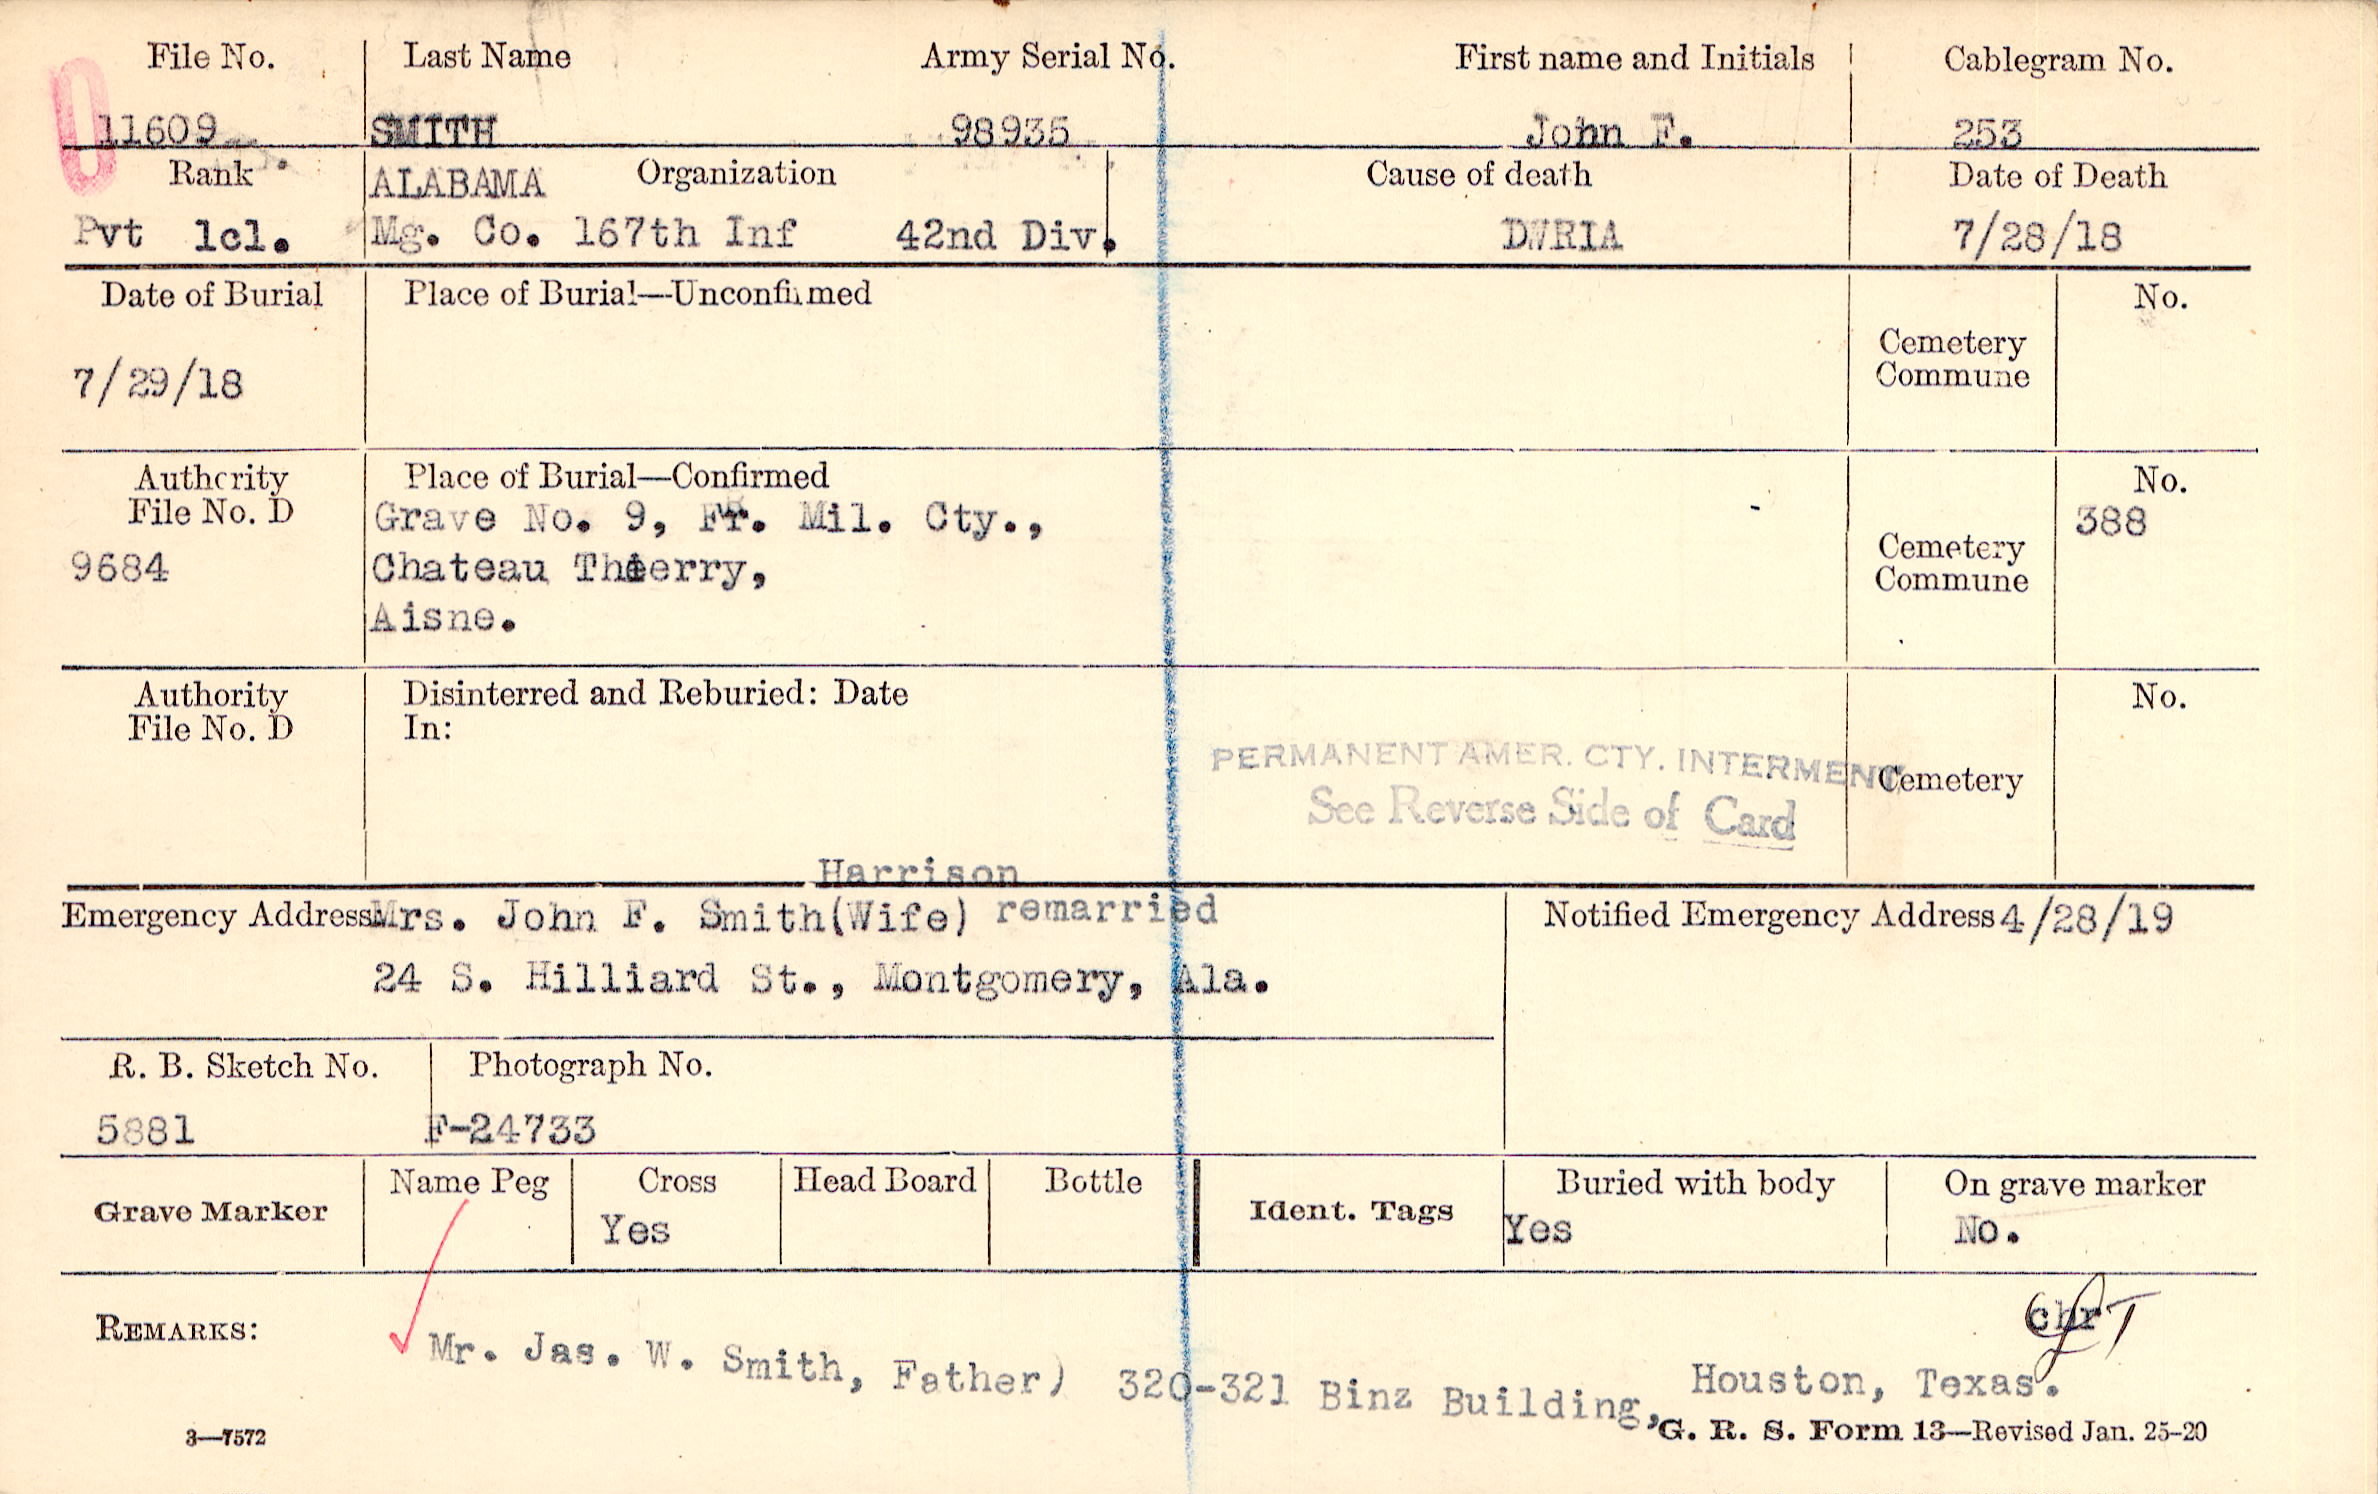 File No. Last Name Army Serial No. First name and Initials Cablegram No.
11609 SMITH 98935 John F. 253
Rank ALABAMA Organization Cause of death Date of Death
Pvt 1cl. Mg. Co. 167th Inf 42nd Div. DWRIA 7/28/18
Date of Burial Place of Burial—Unconfirmed No.
Cemetery
Commune
7/29/18
Authority Place of Burial—Confirmed No.
File No. D Grave No. 9, Fr. Mil. Cty., 388
9684 Chateau Thierry, Cemetery
Commune
Aisne.
Authority Disinterred and Reburied: Date No.
File No. D In:
PERMANENT AMER. CTY. INTERMENT
Cemetery
See Reverse Side of Card
Harrison
Emergency Address Mrs. John F. Smith(Wife) remarried Notified Emergency Address 4/28/19
24 S. Hilliard St., Montgomery, Ala.
R. B. Sketch No. Photograph No.
5881 F-24733
Grave Marker Name Peg Cross Head Board Bottle Ident. Tags Buried with body On grave marker
Yes Yes No.
chr
REMARKS: Mr. Jas. W. Smith, Father) 320-321 Binz Building, Houston, Texas.
3—7572 G. R. S. Form 13—Revised Jan. 25-20